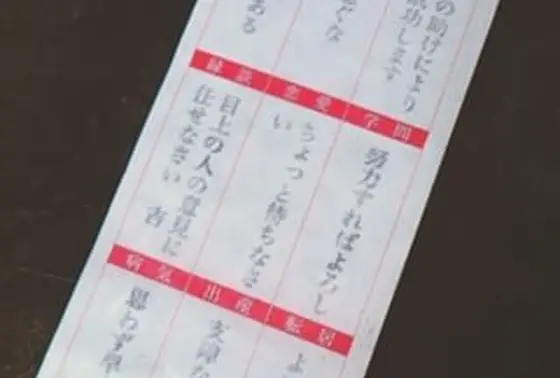 の助けにより
功します
ぐな
ある
学問
努力すればよろし
恋愛
ちょっと待ちなさ
い
縁談
目上の人の意見に
任せなさい 吉
転居
よ
出産
障な
病気
思わず早